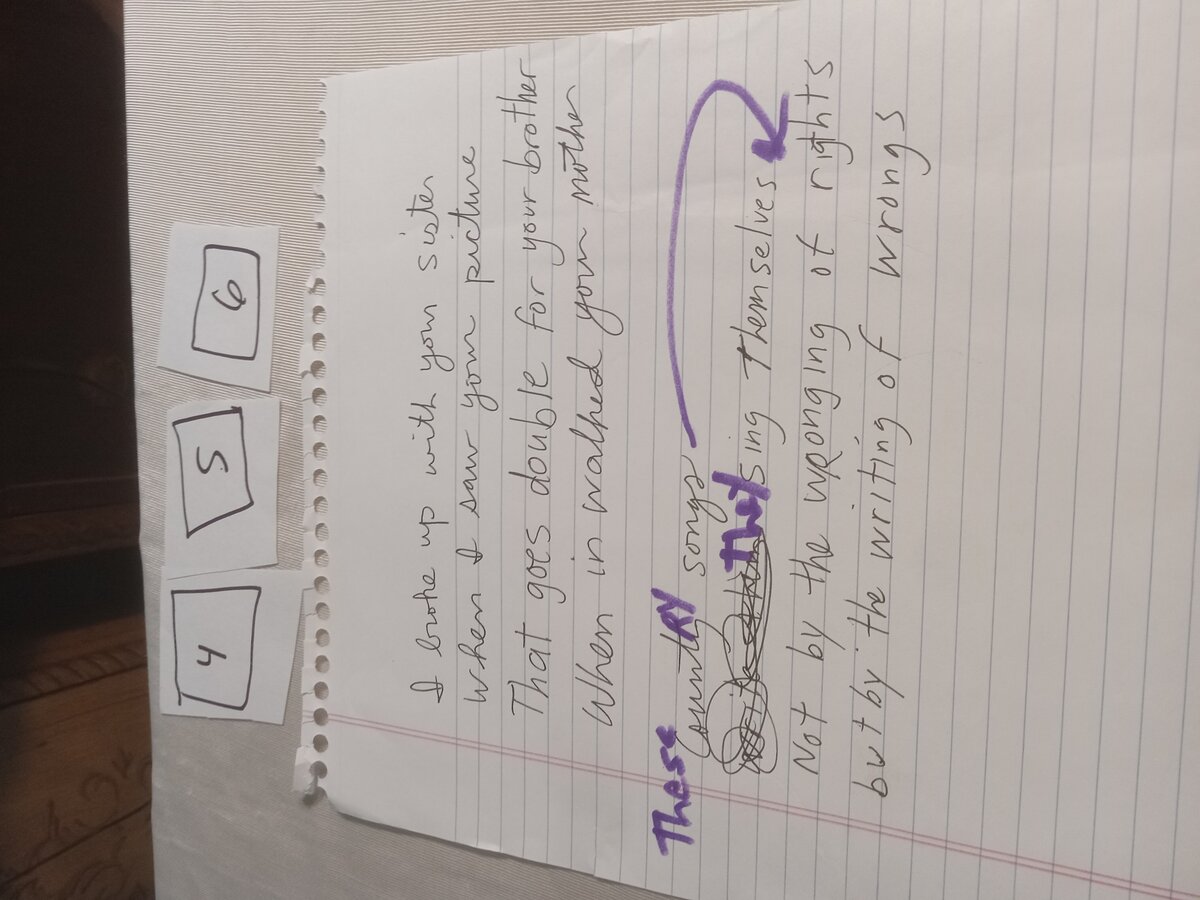 4
5
6
I broke up with your sister
when I saw your picture
That goes double for your brother
When in walked your mother
These Country songs
That sing Themselves
Not by the wronging of rights
but by the writing of wrongs